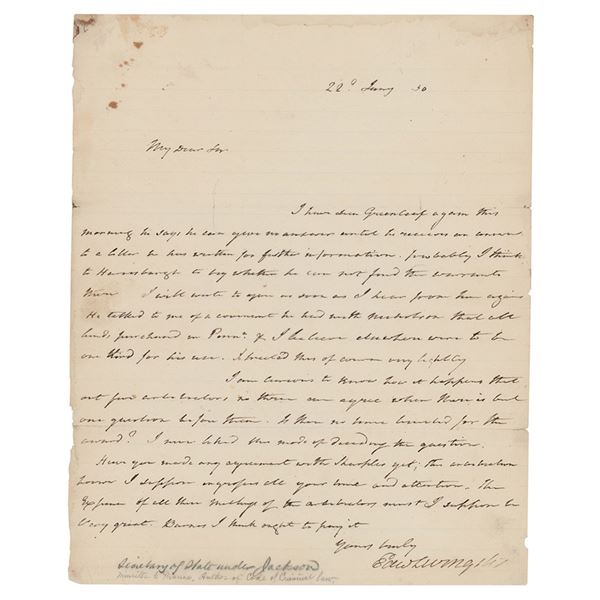 22d Jany 30
My Dear Sir
I have seen Greenleaf again this
morning he says he can give no answer until he receives an answer
to a letter he has written for further information. probably I think
to Harrisburgh to try whether he can not find the warrants
there I will write to you as soon as I hear from him again
He talked to me of a covenant he had with Nicholson that all
lands purchased in Penna. & I believe elsewhere were to be
one third for his use. I treated this of course very lightly
I am curious to know how it happens that
out five arbitrators no three can agree when there is but
one question before them. Is there no time limited for the
award? I never liked this mode of deciding the question.
Have you made any agreement with Sharples yet; the arbitration
I suppose engrosses all your time and attention. The
Expense of all these meetings of the arbitrators must I suppose be
very great. Barnes I think ought to pay it
Yours truly
Edw Livingston
Secretary of State under Jackson
Minister to France, Author of Code of Criminal Law